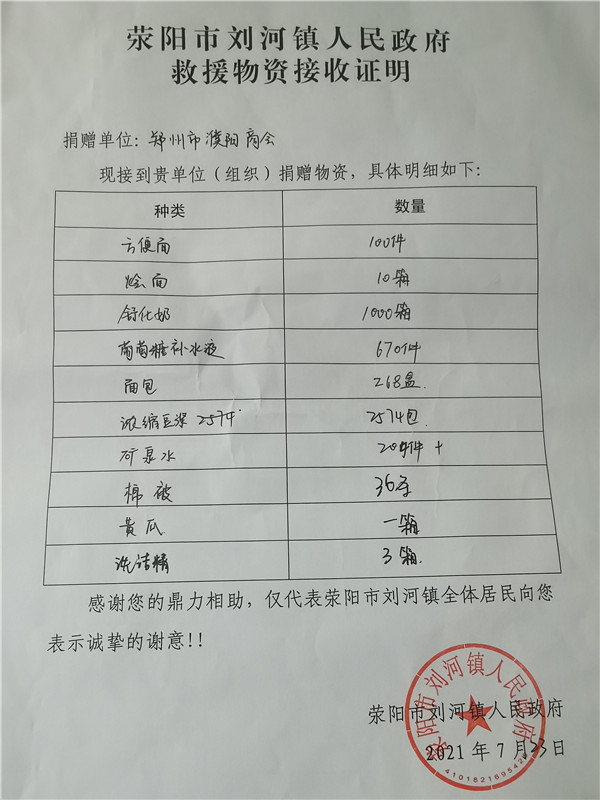 荥阳市刘河镇人民政府
救援物资接收证明
捐赠单位：郑州市濮阳商会
现接到贵单位（组织）捐赠物资，具体明细如下：
种类 数量
方便面 100件
烩面 10箱
舒化奶 1000箱
葡萄糖补水液 670件
面包 268盒.
浓缩豆浆 2574 2574包
矿泉水 件 +
棉被 36
黄瓜. 一箱
洗洁精 3箱.
感谢您的鼎力相助，仅代表荥阳市刘河镇全体居民向您
表示诚挚的谢意！！
荥阳市刘河镇人民政府
2021年7月23日
荥阳市刘河镇人民政府